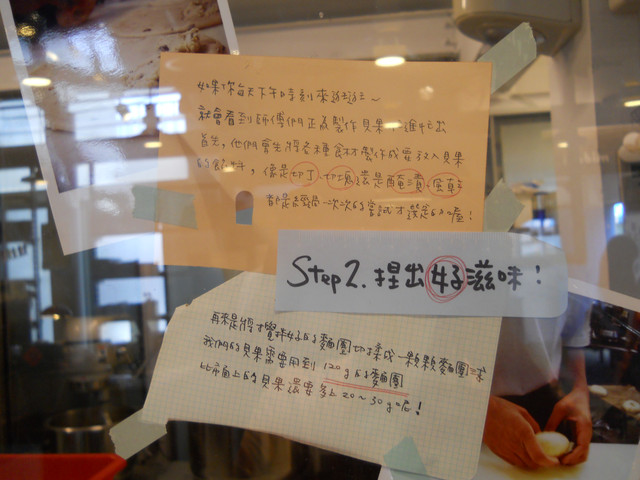 如果你每天下午時刻來逛逛~
就會看到師傅們正為製作貝果而進忙出
首先,他們會先將各種食材製作成要放入貝果
的餡料,像是切丁、切湯還是醃三貴、瘋真了
都是經過一次次的嘗試才決定的喔!
Step2.捏出好滋味!
再來是將攪拌好的麵團切揉成一顆顆麵團球
我們的貝果需要用到120g的麵團
比市面上的貝果還要多上20~30g喔!